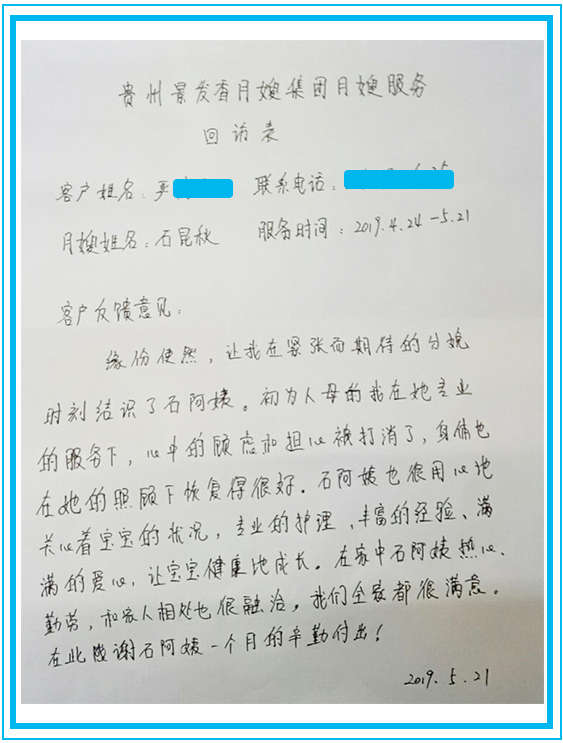 贵州景发香月嫂集团月嫂服务
回访表
客户姓名：	联系电话：
月嫂姓名：石昆秋	服务时间：2019.4.24-5.21
客户反馈意见：
缘份使然，让我在紧张而期待的分娩
时刻结识了石阿姨。初为人母的我在她专业
的服务下，心中的顾虑和担心被打消了，身体也
在她的照顾下恢复得很好。石阿姨也很用心地
关心着宝宝的状况，专业的护理、丰富的经验、满
满的爱心，让宝宝健康地成长。在家中石阿姨热心、
勤劳，和家人相处也很融洽，我们全家都很满意。
在此感谢石阿姨一个月的辛勤付出！
2019.5.21